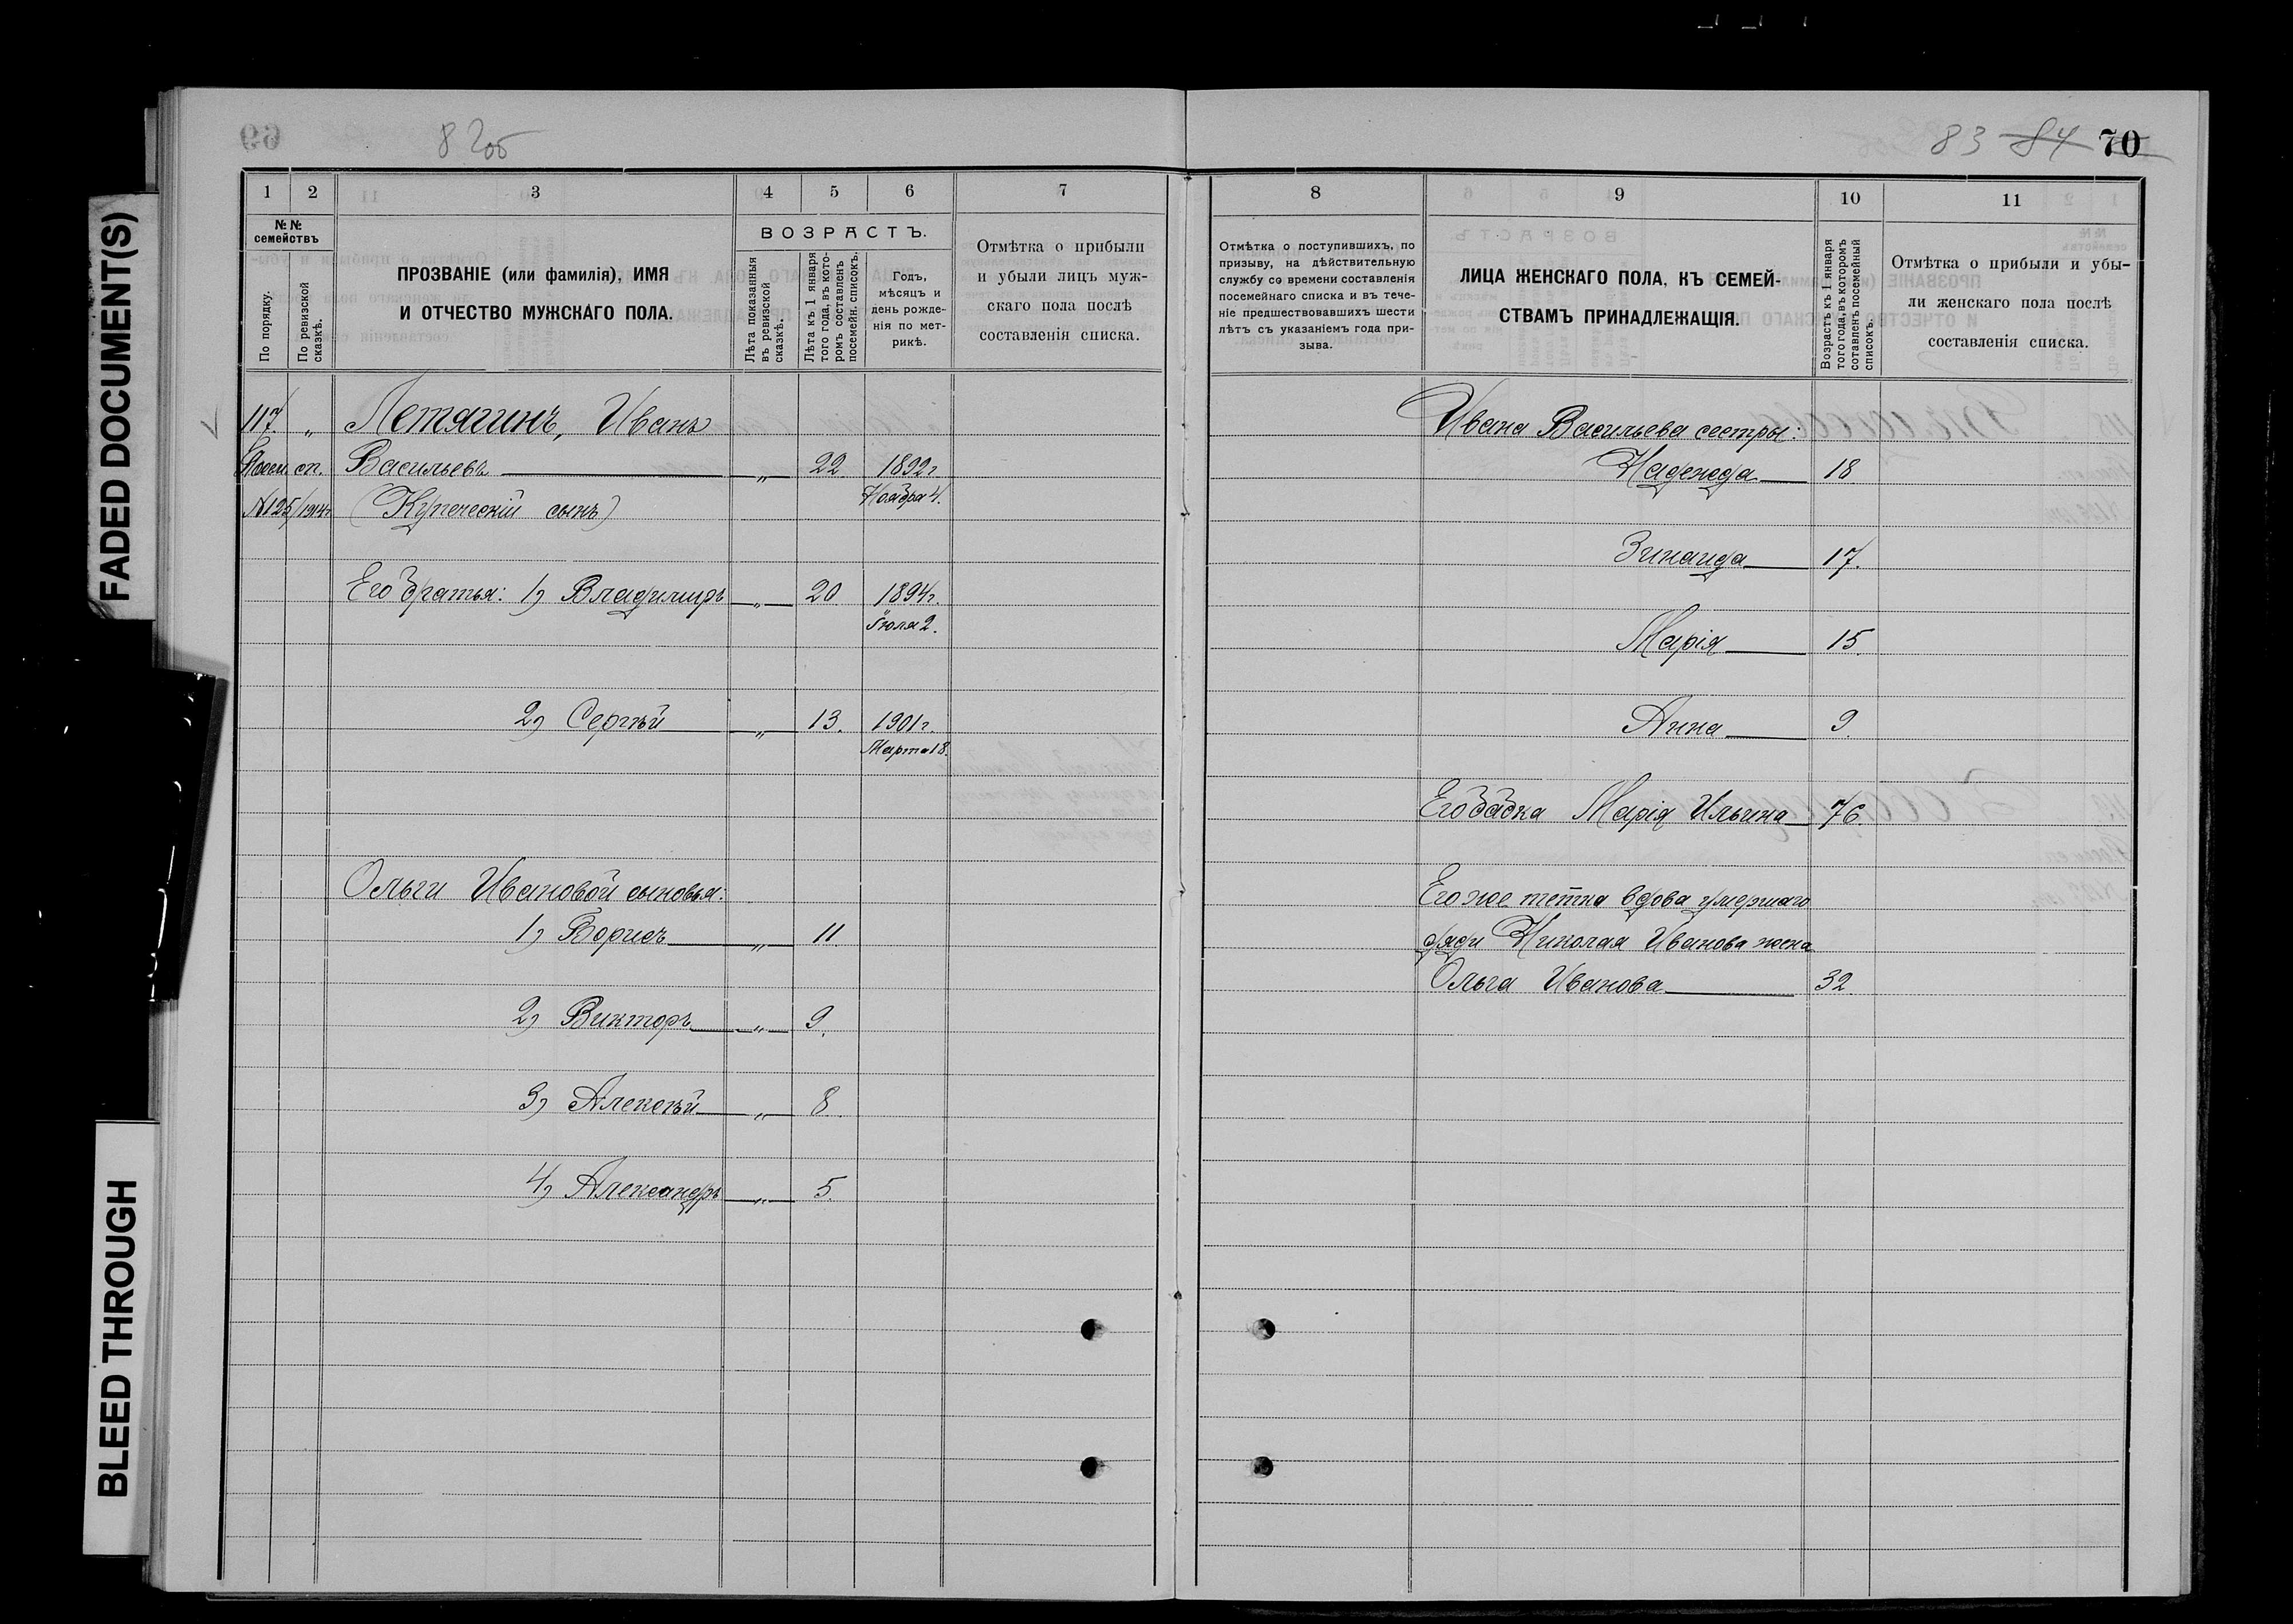 FADED DOCUMENT(S)
BLEED THROUGH
82об
83 84 70
1 2 3 4 5 6 7
№№ семействъ
По порядку.
По ревизской сказкѣ.
ПРОЗВАНІЕ (или фамилія), ИМЯ
И ОТЧЕСТВО МУЖСКАГО ПОЛА.
ВОЗРАСТЪ.
Лѣта показанныя въ ревизской сказкѣ.
Лѣта къ 1 января того года, въ кото-ромъ составленъ посемейн. списокъ.
Годъ,
мѣсяцъ и
день рожде-
нія по мет-
рикѣ.
Отмѣтка о прибыли
и убыли лицъ муж-
скаго пола послѣ
составленія списка.
117. „ Летягинъ, Иванъ
Посем. сп. Васильевъ „ 22 1892 г.
Ноября 4.
№125/1914г (Купеческій сынъ)
Его братья: 1) Владиміръ „ 20 1894 г.
Іюля 2.
2) Сергѣй „ 13. 1901 г.
Марта 18.
Ольги Ивановой сыновья:
1) Борисъ „ 11
2) Викторъ „ 9.
3) Алексѣй „ 8.
4) Александръ „ 5.
8 9 10 11
Отмѣтка о поступившихъ, по
призыву, на дѣйствительную
службу со времени составленія
посемейнаго списка и въ тече-
ніе предшествовавшихъ шести
лѣтъ съ указаніемъ года при-
зыва.
ЛИЦА ЖЕНСКАГО ПОЛА, КЪ СЕМЕЙ-
СТВАМЪ ПРИНАДЛЕЖАЩІЯ.
Возрастъ къ 1 января
того года, въ которомъ
сотавленъ посемейный
списокъ.
Отмѣтка о прибыли и убы-
ли женскаго пола послѣ
составленія списка.
Ивана Васильева сестры:
Надежда 18
Зинаида 17.
Марія 15.
Анна 9.
Его бабка Марія Ильина 76.
Его же тетка вдова умершаго
дяди Николая Иванова жена
Ольга Иванова 32.